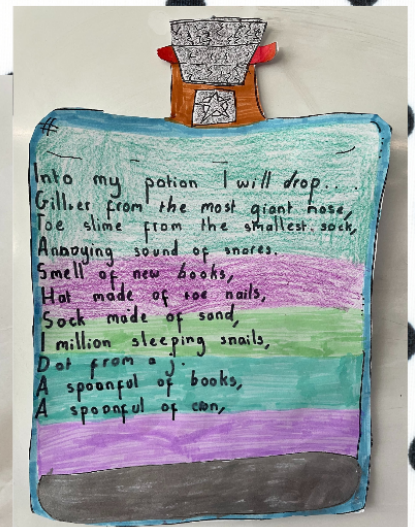 Into my potion I will drop...
from the most giant nose,
Toe slime from the smallest sock,
Annoying sound of snores.
Smell of new books,
Hat made of toe nails,
Sock made of sand,
1 million sleeping snails,
Dot from a j.
A spoonful of books,
A spoonful of